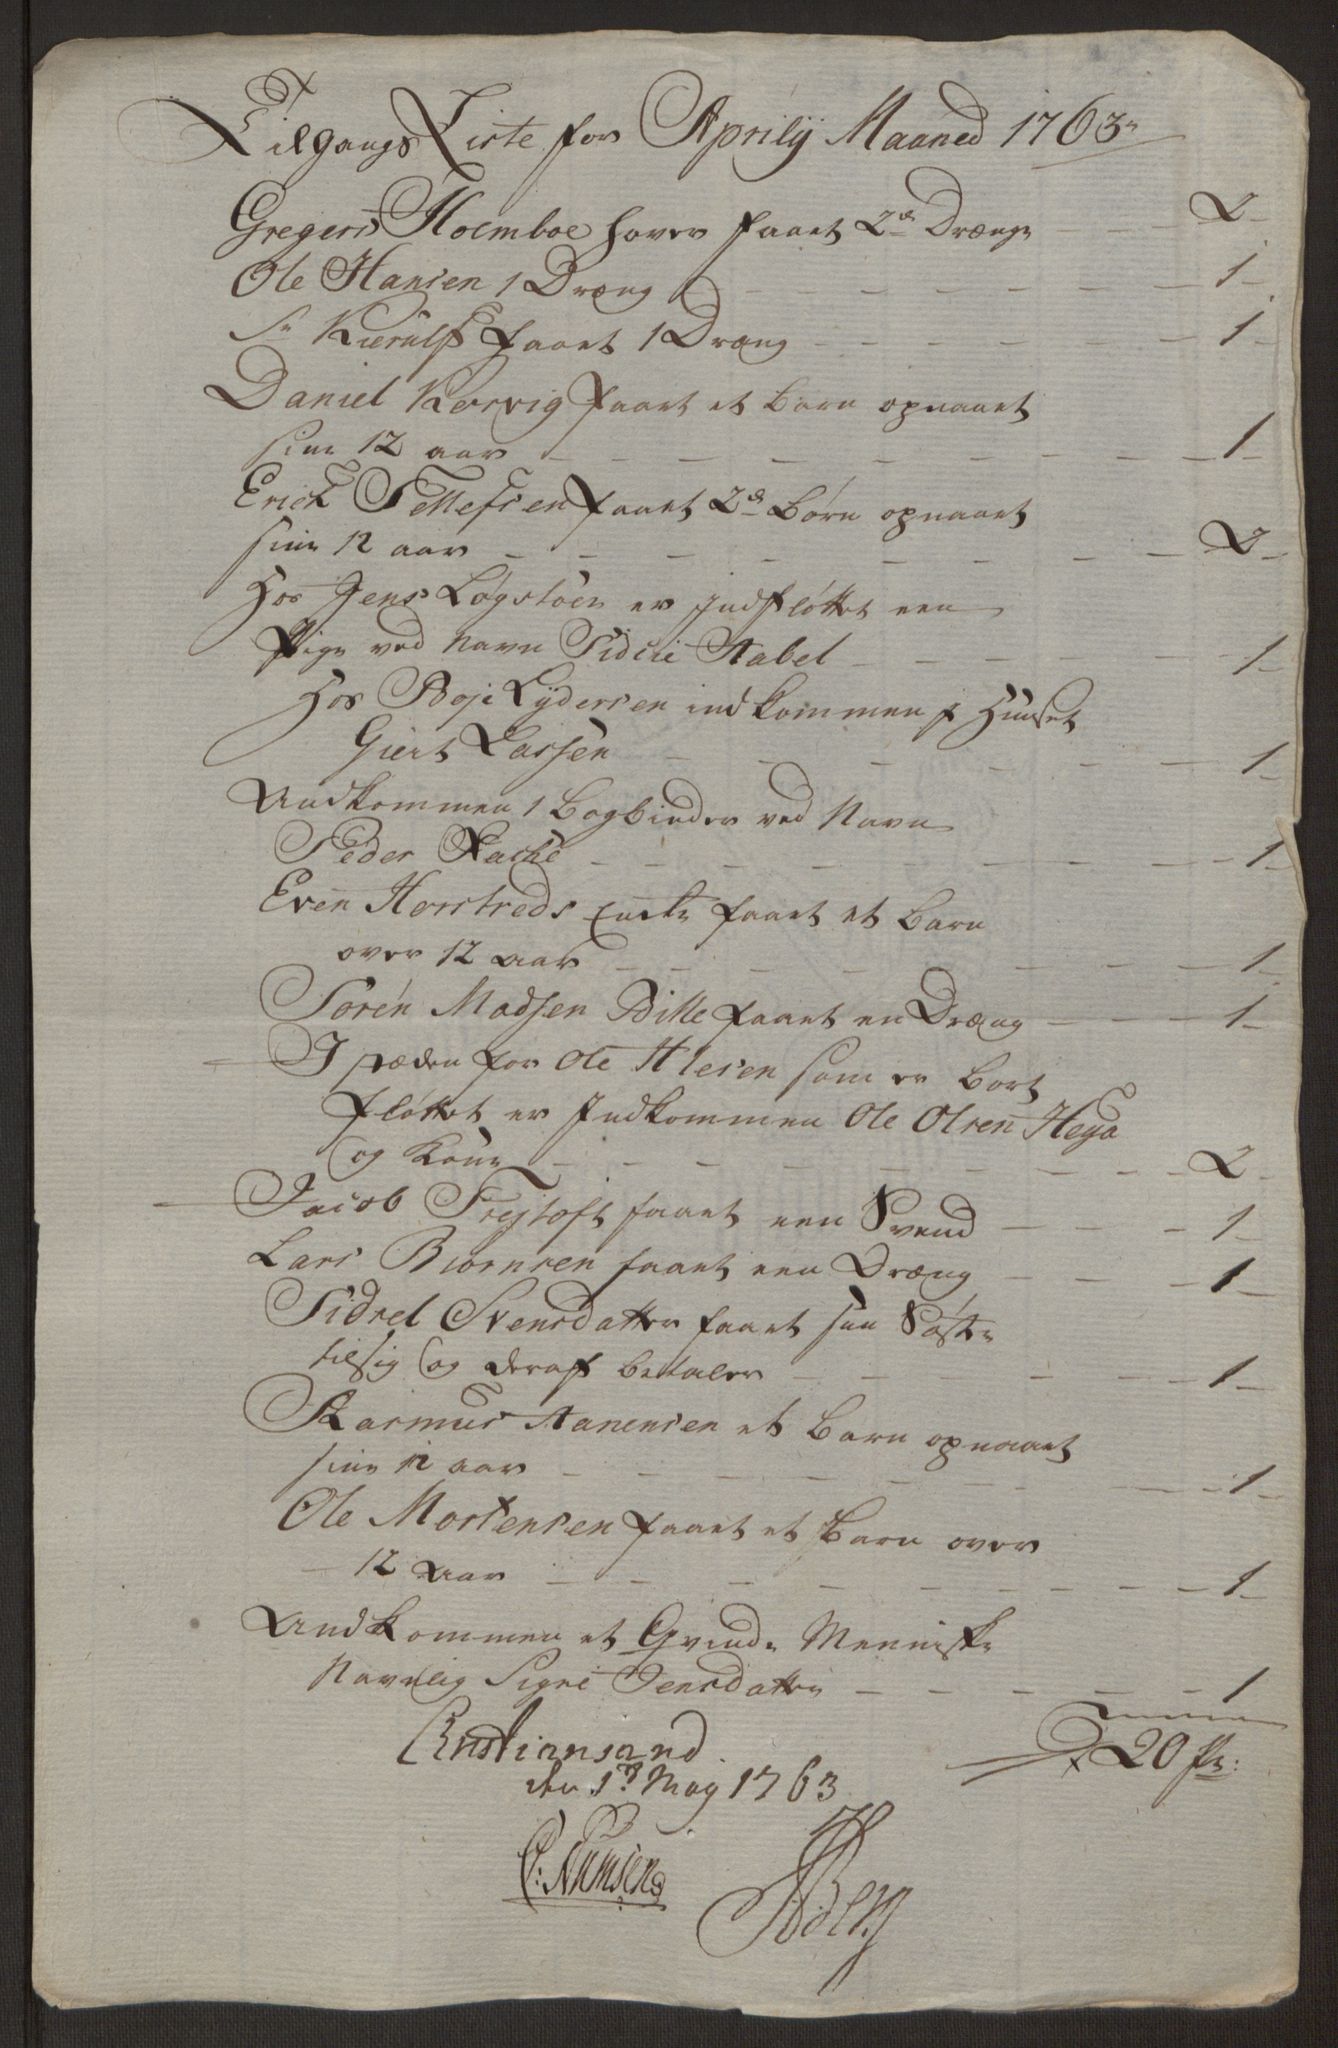 Tilgangs Liste for Aprily Maaned 1763
Gregers Holmboe haver faaet 2de Drænge - - - 2 -
Ole Hansen 1 Dræng - - - - - - 1 -
Sr Kierulf faaet 1 Dræng - - - - - - 1 -
Daniel Kervig faaet et barn opnaaet
sine 12 aar - - - - - - - 1 -
Erich Tellefsen faaet 2de børn opnaaet
sine 12 aar - - - - - - - 2 -
Hos Jens Løgstøer er Indfløttet een
Pige ved navn Sidcie Aabel - - - - - - 1 -
Hos Boje Lydersen indkommen j Huuset
Giert Lassen - - - - - - 1 -
Andkommen 1 bogbinder ved Navn
Peder - - - - - - - 1 -
Even Horstreds Encke faaet et barn
over 12 aar - - - - - - - 1 -
Søren Madsen Bille faaet en Dræng - - - - 1 -
I stæden for Ole som er bort
fløttet er Indkommen Ole Olsen Heya
og kone - - - - - - - - 2 -
Jacob Trejtoft faaet een Svend - - - - 1 -
Lars Biørnsen faaet een Dræng - - - - 1 -
Sidsel Svensdatter faaet sin
til sig og deraf betaler - - - - - - 1 -
Rasmus Aanensen et barn opnaaet
sine 12 aar - - - - - - - 1 -
Ole Mortensen faaet et barn over
12 aar - - - - - - - - 1 -
Andkommen et Qvinde Menniske
Navnlig Signe Jensdatter - - - - - - 1
Christiansand 20 Ps:
den 1te May 1763
C: Numsen Berg